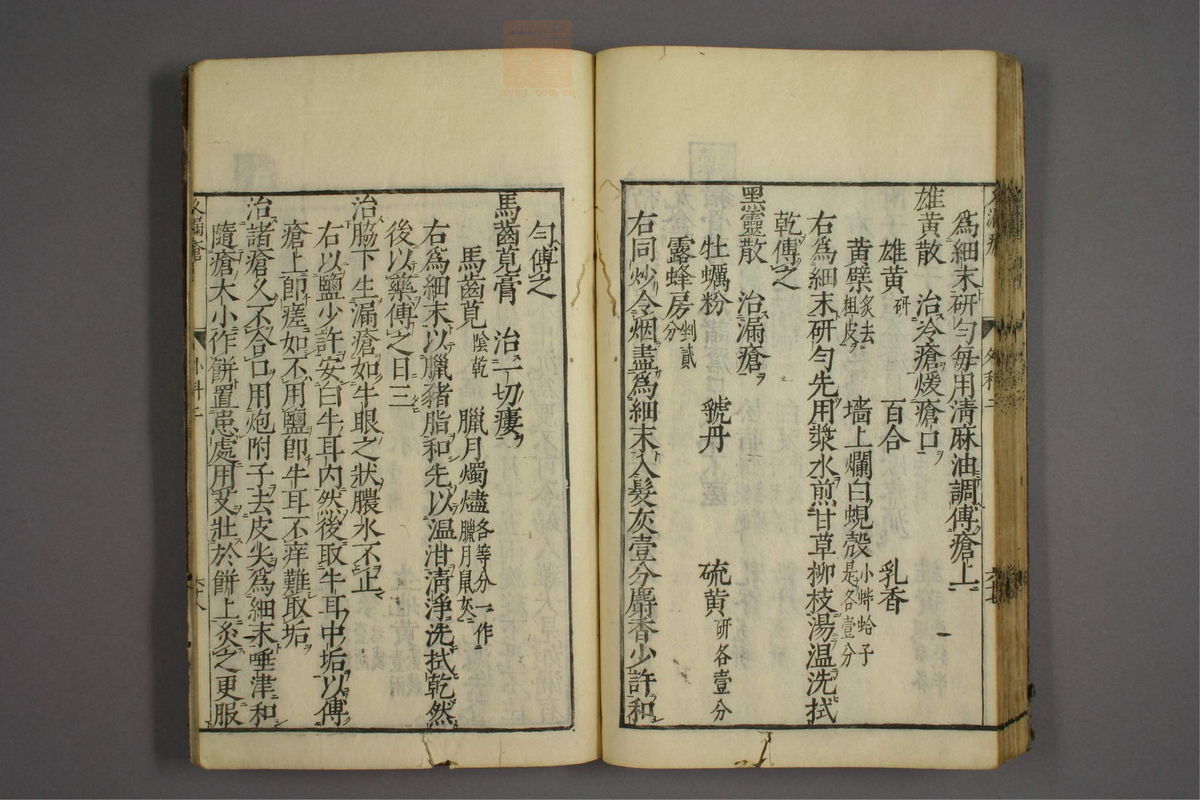 為細末研勻每用清麻油調傅瘡上
雄黃散　治冷瘡煖瘡口
雄黃研　百合　乳香
黃檗炙去粗皮　墻上爛白蜆殼小蚌蛤子是各壹分
右為細末研勻先用漿水煎甘草柳枝湯温洗拭
乾傅之
黑靈散　治漏瘡
牡蠣粉　虢丹　硫黃研各壹分
露蜂房剉貳分
右同炒令烟盡為細末入髮灰壹分麝香少許和
勻傅之
馬齒莧膏　治一切瘻
馬齒莧陰乾　臘月燭燼各等分一作臘月鼠灰
右為細末以臘豬脂和先以温泔清淨洗拭乾然
後以藥傅之日三
治脇下生漏瘡如牛眼之狀膿水不止
右以鹽少許安白牛耳內然後取牛耳中垢以傅
瘡上即瘥如不用鹽即牛耳不痒難取垢
治諸瘡久不合口用炮附子去皮尖為細末唾津和
隨瘡大小作餅置患處用艾壯於餅上灸之更服
久漏瘡
外科二